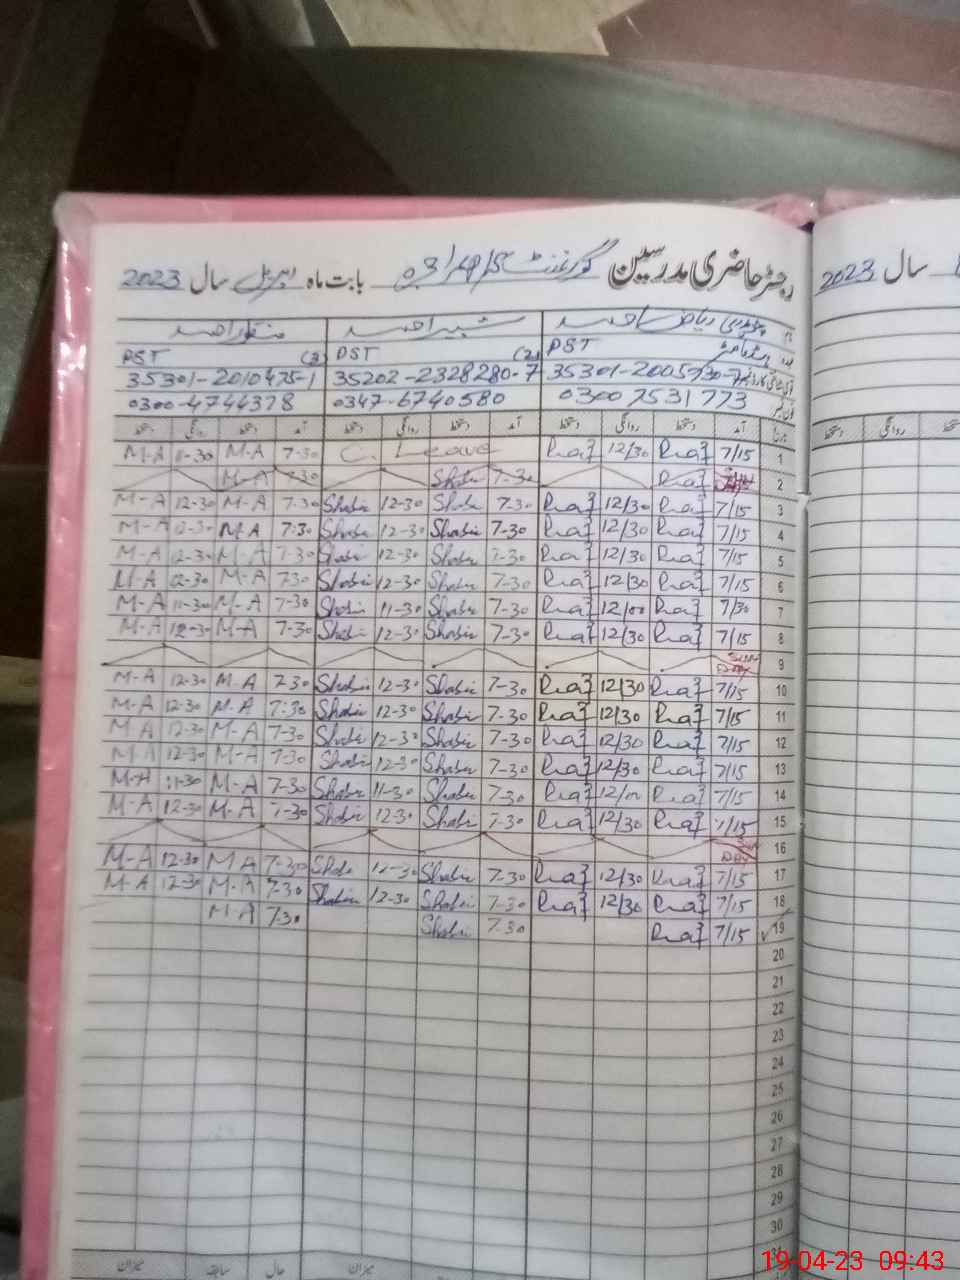 رجسٹر حاضری مدرسین گورنمنٹ بابت ماہ اپریل سال 2023
سال 2023
ریاض احمد شبیر احمد منظور احمد
PST PST (2) PST (3)
35202-2328280-7 35301-2010475-1
0300 7531773 0347-6740580 0300-4744378
تاریخ آمد دستخط روانگی دستخط آمد دستخط روانگی دستخط آمد دستخط روانگی دستخط
1 7/15 Riaz 12/30 Riaz C. Leave 7-30 M-A 11-30 M-A
2 Riaz 7-30 Shabir 7-30 M-A
3 7/15 Riaz 12/30 Riaz 7-30 Shabir 12-30 Shabir 7-30 M-A 12-30 M-A
4 7/15 Riaz 12/30 Riaz 7-30 Shabir 12-30 Shabir 7-30 M-A 12-30 M-A
5 7/15 Riaz 12/30 Riaz 7-30 Shabir 12-30 Shabir 7-30 M-A 12-30 M-A
6 7/15 Riaz 12/30 Riaz 7-30 Shabir 12-30 Shabir 7-30 M-A 12-30 M-A
7 7/30 Riaz 12/00 Riaz 7-30 Shabir 11-30 Shabir 7-30 M-A 11-30 M-A
8 7/15 Riaz 12/30 Riaz 7-30 Shabir 12-30 Shabir 7-30 M-A 12-30 M-A
9 SUN DAY
10 7/15 Riaz 12/30 Riaz 7-30 Shabir 12-30 Shabir 7-30 M-A 12-30 M-A
11 7/15 Riaz 12/30 Riaz 7-30 Shabir 12-30 Shabir 7-30 M-A 12-30 M-A
12 7/15 Riaz 12/30 Riaz 7-30 Shabir 12-30 Shabir 7-30 M-A 12-30 M-A
13 7/15 Riaz 12/30 Riaz 7-30 Shabir 12-30 Shabir 7-30 M-A 12-30 M-A
14 7/15 Riaz 12/00 Riaz 7-30 Shabir 11-30 Shabir 7-30 M-A 11-30 M-A
15 7/15 Riaz 12/30 Riaz 7-30 Shabir 12-30 Shabir 7-30 M-A 12-30 M-A
16 SUN DAY
17 7/15 Riaz 12/30 Riaz 7-30 Shabir 12-30 Shabir 7-30 M-A 12-30 M-A
18 7/15 Riaz 12/30 Riaz 7-30 Shabir 12-30 Shabir 7-30 M-A 12-30 M-A
19 7/15 Riaz 7-30 Shabir 7-30 M-A
20
21
22
23
24
25
26
27
28
29
30
میزان حال سابقہ میزان
19-04-23 09:43